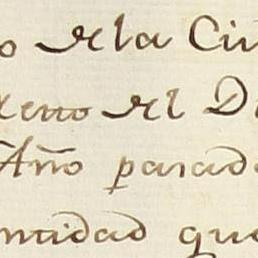 o de la Ciu
reno del D
Año pasad
ntidad que